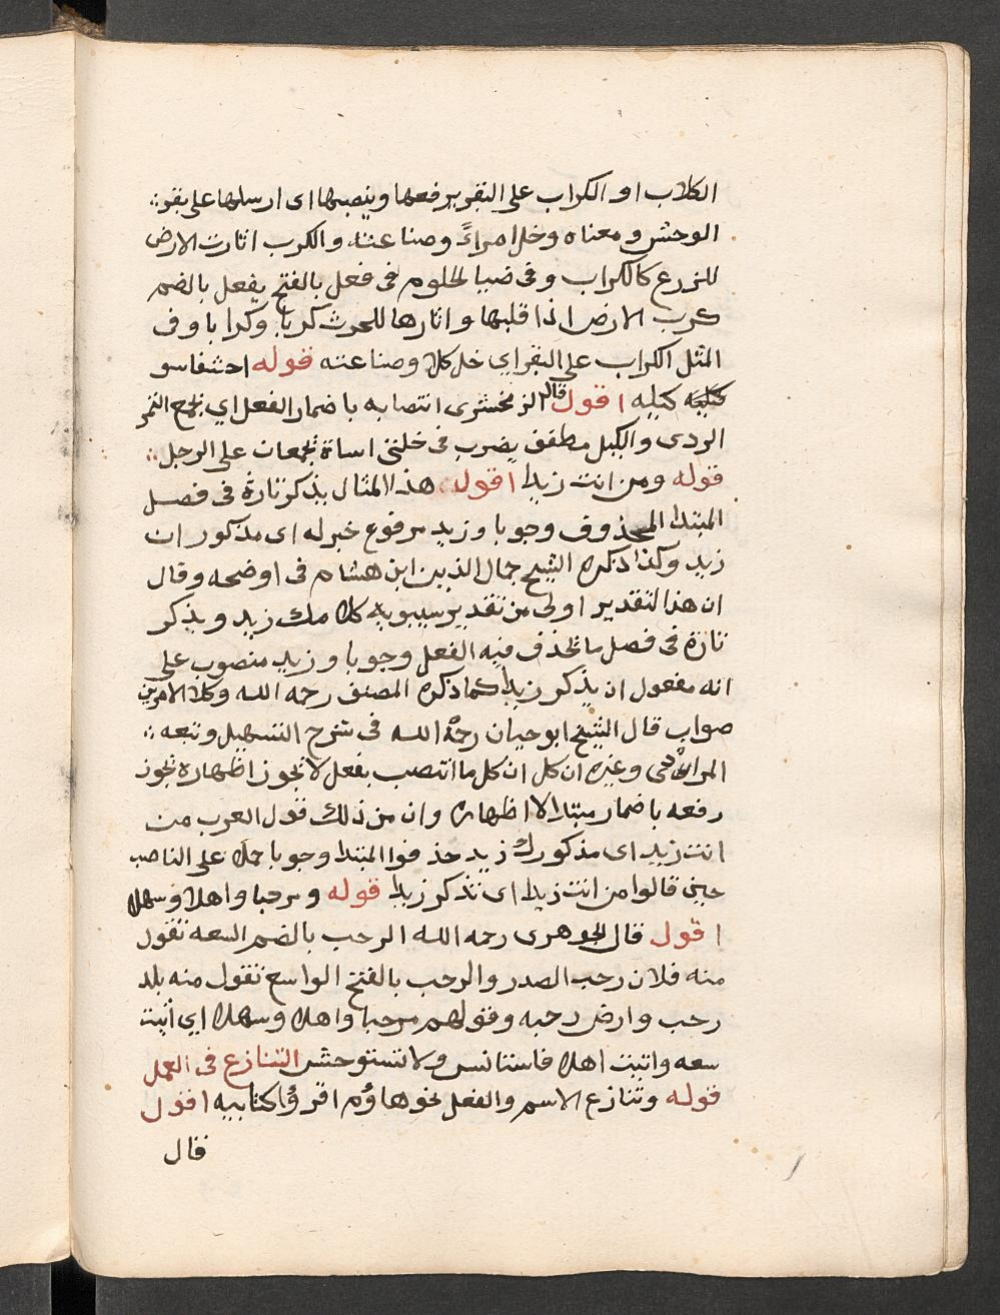 الكلاب او الكراب على البقر يرفعها وينصبها اى ارسلها على بقر
الوحش ومعناه وخل امراءً وصناعته والكرب اثارت الارض
للزرع كالكراب وفى ضيا الحلوم فى فعل بالفتح يفعل بالضم
كرب الارض اذا قلبها واثارها للحرث كربا وكرابا وفى
المثل الكراب على البقر اي خل كلا وصناعته قوله احشفا سو
كيله اقول قال الزمخشرى انتصابه باضمار الفعل اي تجمع التمر
الردى والكيل مطفف يضرب فى خلتى اساة تجمعان على الرجل
قوله ومن انت زيدا اقول هذا المثال يذكر تارة فى فصل
المبتدا المحذوف وجوبا وزيد مرفوع خبر له اى مذكور ان
زيد وكذا ذكره الشيخ جمال الدين ابن هشام فى اوضحه وقال
ان هذا التقدير اولى من تقدير سيبويه كلامك زيد ويذكر
تارة فى فصل ما تحذف فيه الفعل وجوبا وزيد منصوب على
انه مفعول ان يذكر زيدا كما ذكره المصنف رحمه الله وكلا الامرين
صواب قال الشيخ ابو حيان رحمه الله فى شرح التسهيل وتبعه
المرادى وغيره ان كل ان كل ما انتصب بفعل لا تجوز اظهاره تجوز
رفعه باضمار مبتدا لا اظهاره وان من ذلك قول العرب من
انت زيد اى مذكورك زيد حذفوا المبتدا وجوبا حملا على الناصب
حين قالوا من انت زيدا اى تذكر زيدا قوله ومرحبا واهلا وسهلا
اقول قال الجوهرى رحمه الله الرحب بالضم السعه تقول
منه فلان رحب الصدر والرحب بالفتح الواسع تقول منه بلد
رحب وارض رحبه وقولهم مرحبا واهلا وسهلا اي أتيت
سعه واتيت اهلا فاستانس ولا تستوحش التنازع فى العمل
قوله وتنازع الاسم والفعل نحو هاؤم اقرؤا كتابيه اقول
قال